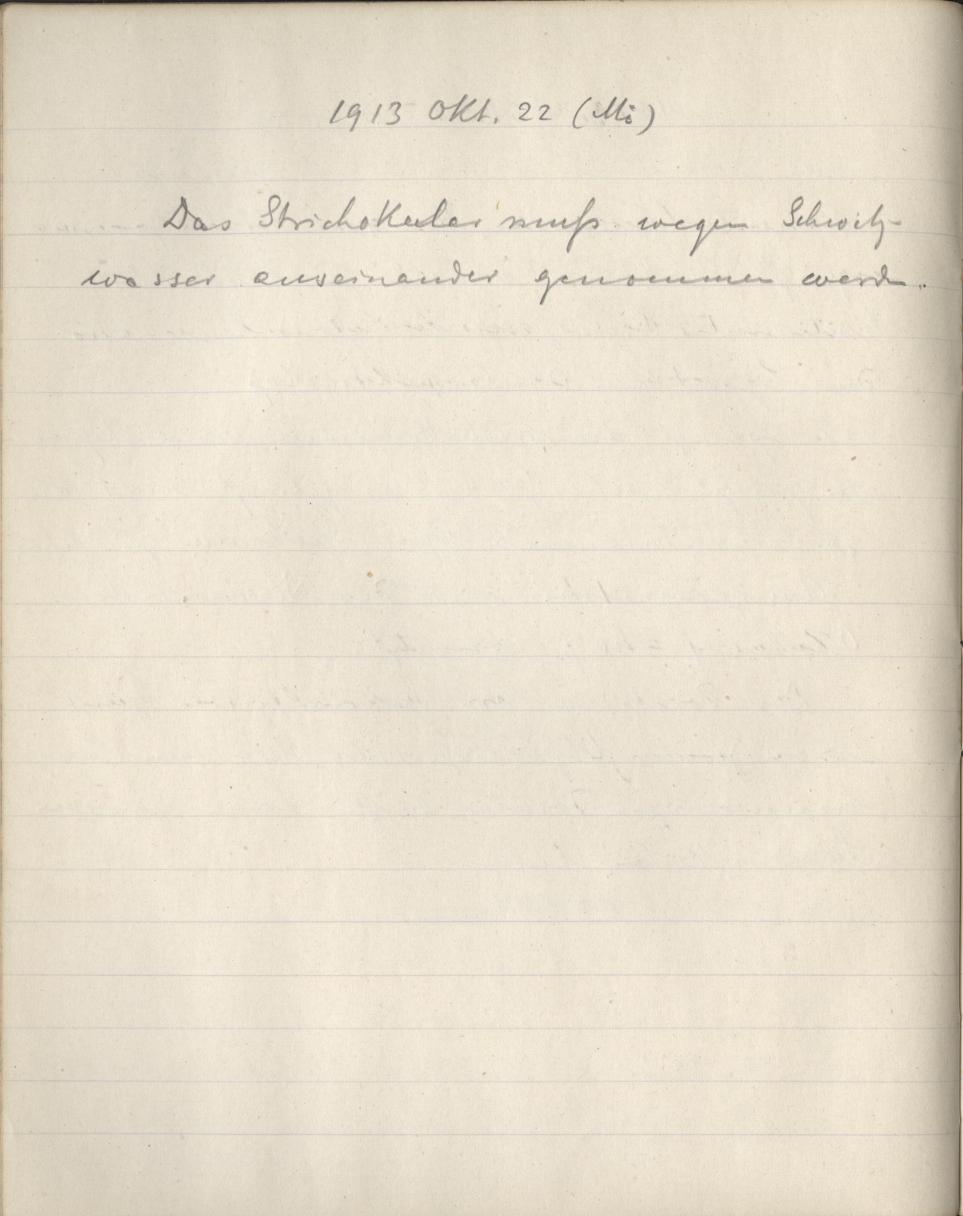 1913 Okt. 22 (Mi)
Das Strichokular muß wegen Schwitz-
wasser auseinander genommen werden.